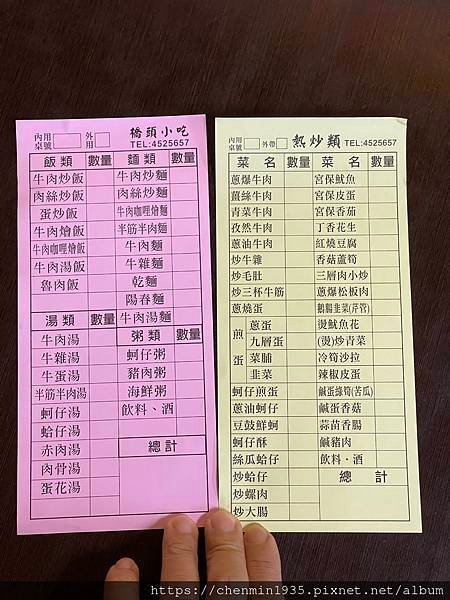 內用 外用 橋頭小吃
桌號 TEL:4525657
飯類 數量 麵類 數量
牛肉炒飯 牛肉炒麵
肉絲炒飯 肉絲炒麵
蛋炒飯 牛肉咖哩燴麵
牛肉燴飯 半筋半肉麵
牛肉咖哩燴飯 牛肉麵
牛肉湯飯 牛雜麵
魯肉飯 乾麵
陽春麵
湯類 數量 牛肉湯麵
牛肉湯 粥類 數量
牛雜湯 蚵仔粥
牛蛋湯 豬肉粥
半筋半肉湯 海鮮粥
蚵仔湯 飲料、酒
蛤仔湯
赤肉湯 總計
肉骨湯
蛋花湯
內用 外帶 熱炒類 TEL:4525657
桌號
菜名 數量 菜名 數量
蔥爆牛肉 宮保魷魚
薑絲牛肉 宮保皮蛋
青菜牛肉 宮保香茄
孜然牛肉 丁香花生
蔥油牛肉 紅燒豆腐
炒牛雜 香菇蘆筍
炒毛肚 三層肉小炒
炒三杯牛筋 蔥爆松板肉
蔥燒蛋 鵝腸韭菜(芹管)
煎蛋 蔥蛋 燙魷魚花
九層蛋 (燙)炒青菜
菜脯 冷筍沙拉
韭菜 辣椒皮蛋
蚵仔煎蛋 鹹蛋綠筍(苦瓜)
蔥油蚵仔 鹹蛋香菇
豆鼓鮮蚵 蒜苗香腸
蚵仔酥 鹹豬肉
絲瓜蛤仔 飲料．酒
炒蛤仔 總計
炒螺肉
炒大腸
https://chenmin1935.pixnet.net/album